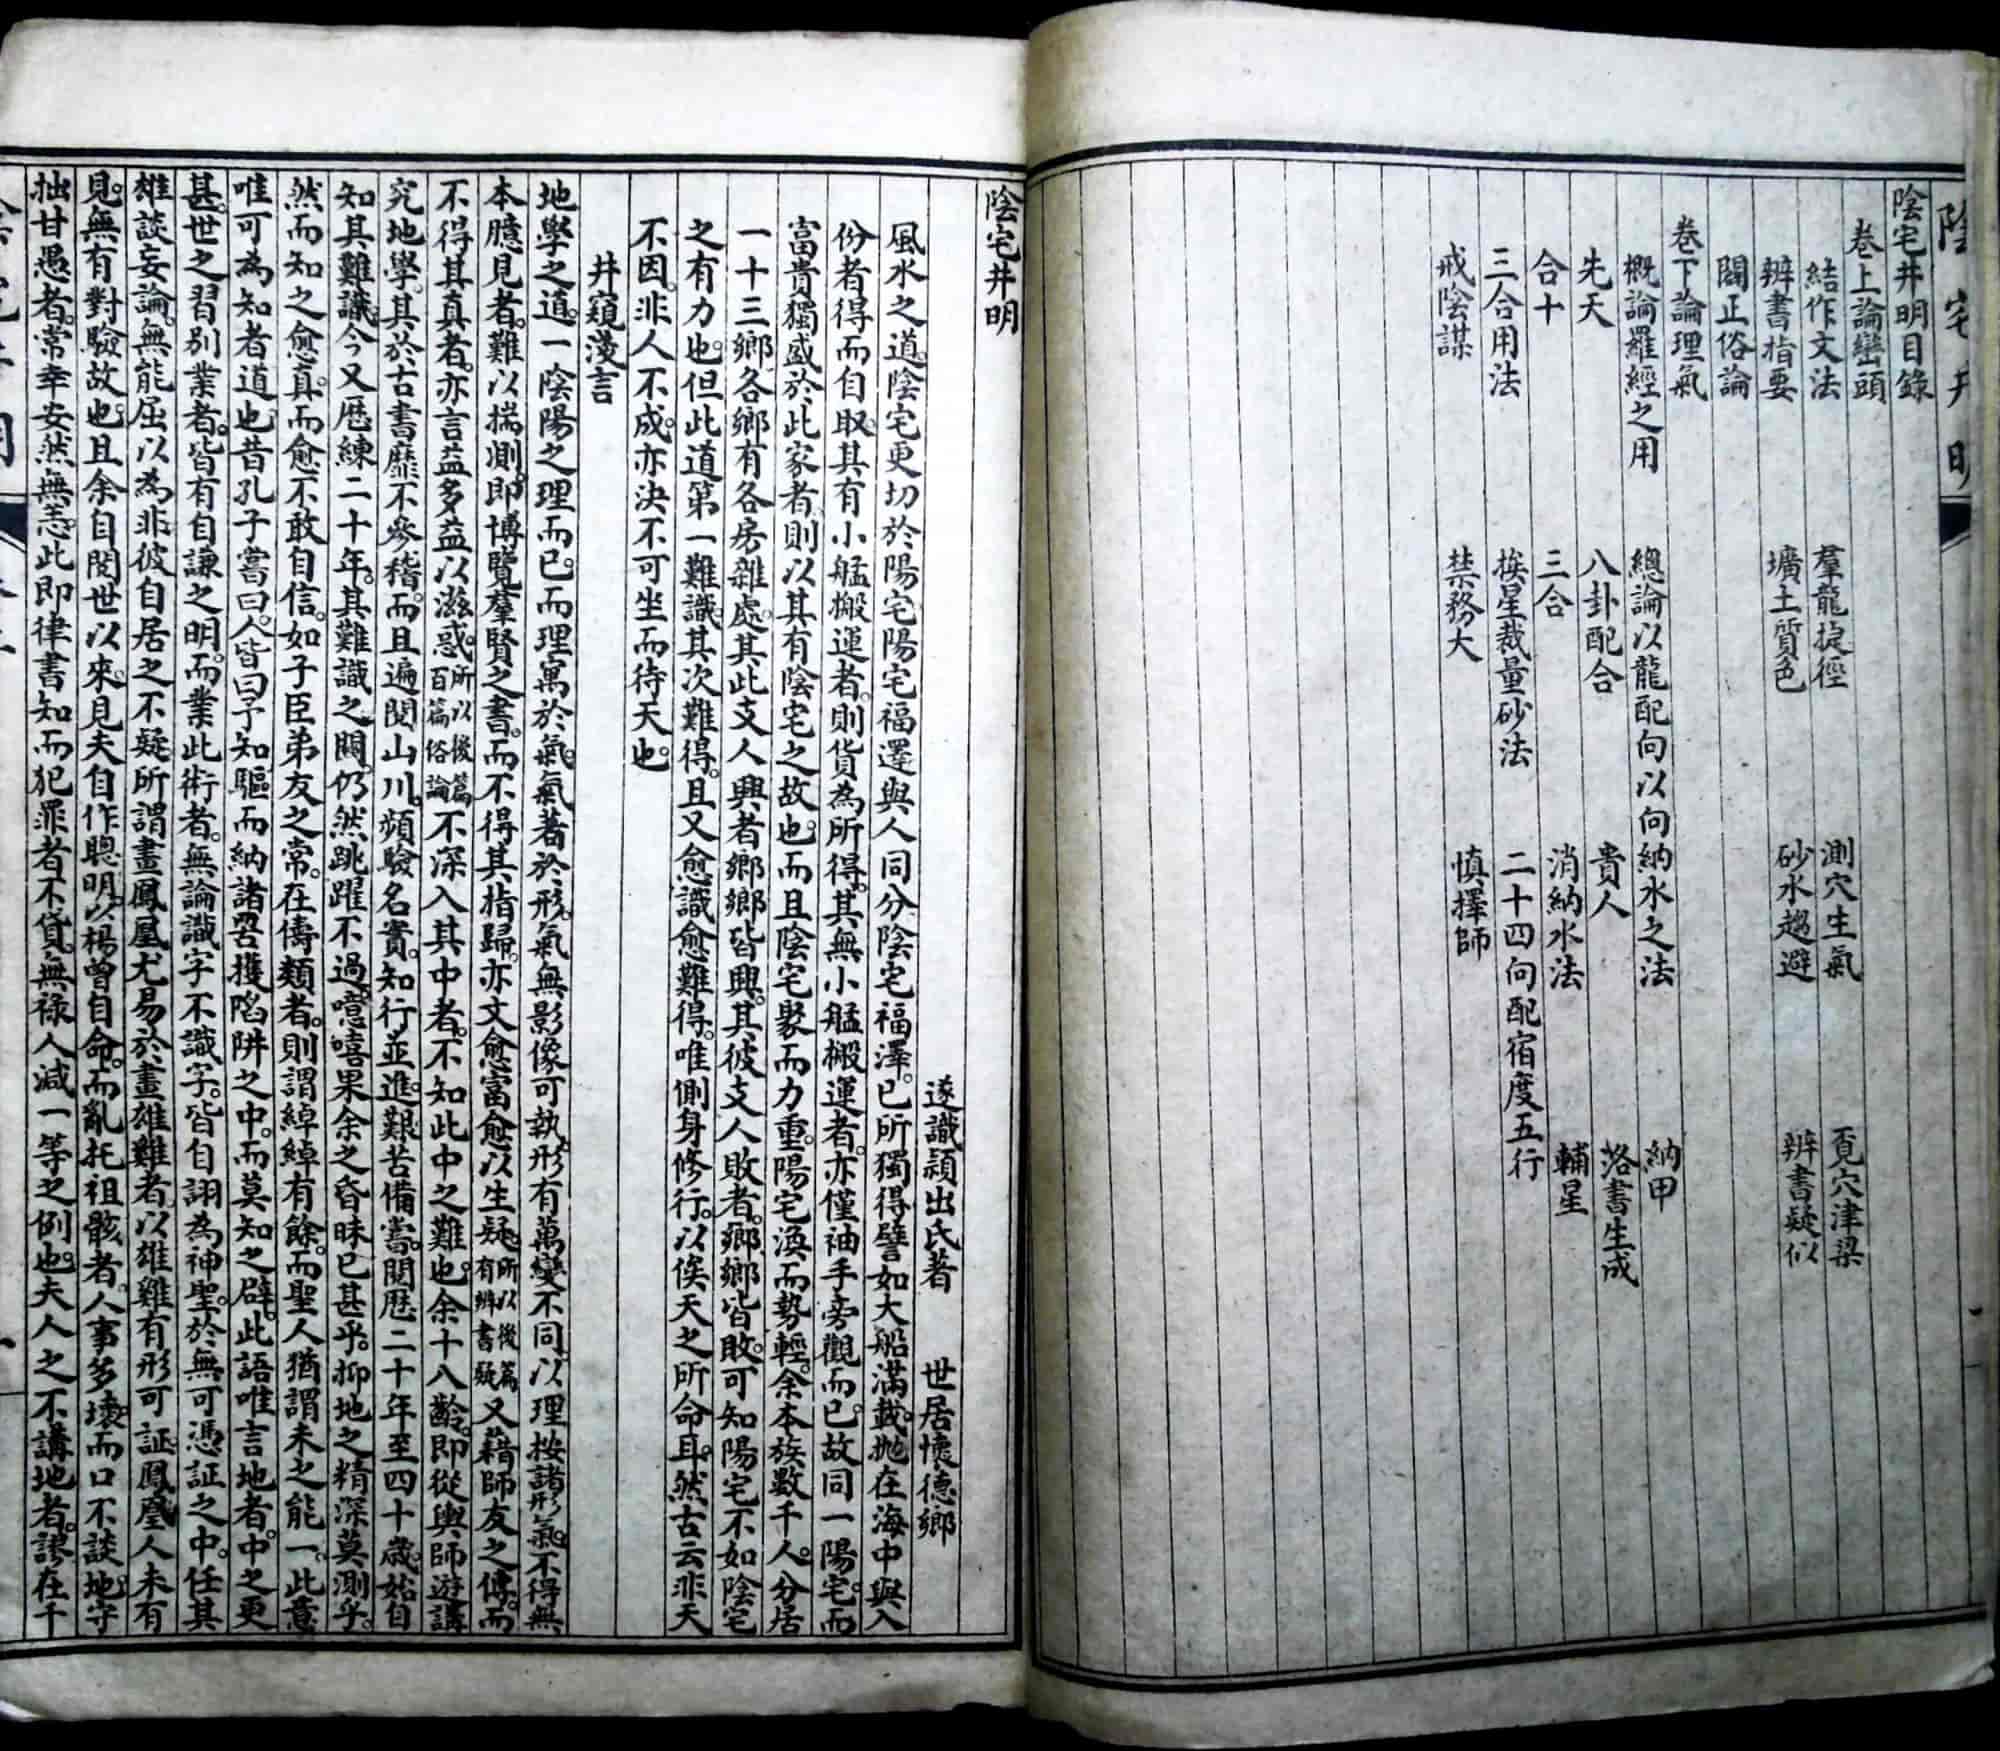 陰宅井明
陰宅井明目錄
卷上論巒頭
結作文法　羣龍捷徑　測穴生氣　覓穴津梁
辨書指要　壙土質色　砂水趨避　辨書疑似
闢正俗論
卷下論理氣
概論羅經之用　總論以龍配向以向納水之法　納甲
先天　八卦配合　貴人　洛書生成
合十　三合　消納水法　輔星
三合用法　挨星裁量砂法　二十四向配宿度五行
戒陰謀　禁務大　慎擇師
陰宅井明
遂識穎出氏著　世居懷德鄉
風水之道。陰宅更切於陽宅。陽宅福澤與人同分。陰宅福澤。已所獨得。譬如大船滿載。拋在海中。與入
份者得而自取。其有小艋搬運者。則貨為所得。其無小艋搬運者。亦僅袖手旁觀而已。故同一陽宅。而
富貴獨盛於此家者。則以其有陰宅之故也。而且陰宅聚而力重。陽宅渙而勢輕。余本族數千人。分居
一十三鄉。各鄉有各房雜處。其此支人興者。鄉鄉皆興。其彼支人敗者。鄉鄉皆敗。可知陽宅不如陰宅
之有力也。但此道第一難識。其次難得。且又愈識愈難得。唯側身修行。以俟天之所命耳。然古云非天
不因。非人不成。亦決不可坐而待天也。
井窺漫言
地學之道。一陰陽之理而已。而理寓於氣。氣著於形。氣無影像可執。形有萬變不同。以理按諸形氣。不得無
本臆見者。難以揣測。即博覽羣賢之書。而不得其指歸。亦文愈富愈以生疑。所以後篇有辨書疑又藉師友之傳。而
不得其真者。亦言益多益以滋惑。所以後篇百篇俗論不深入其中者。不知此中之難也。余十八齡。即從輿師遊講
究地學。其於古書靡不參稽。而且遍閱山川。頻驗名實。知行並進。艱苦備嘗。閱歷二十年至四十歲。始自
知其難識。今又歷練二十年。其難識之關。仍然跳躍不過。噫嘻果余之昏昧已甚乎。抑地之精深莫測乎。
然而知之愈真。而愈不敢自信。如子臣弟友之常。在儔類者。則謂綽綽有餘。而聖人猶謂未之能一。此意
唯可為知者道也。昔孔子嘗曰。人皆曰予知驅而納諸罟擭陷阱之中。而莫知之辟。此語唯言地者。中之更
甚。世之習別業者。皆有自謙之明。而業此術者。無論識字不識字。皆自詡為神聖。於無可憑証之中。任其
雄談妄論。無能屈以為非。彼自居之不疑。所謂畫鳳凰尤易於畫雄雞者。以雄雞有形可証。鳳凰人未有
見。無有對驗故也。且余自閱世以來。見夫自作聰明。以楊曾自命。而亂扡祖骸者。人事多壞。而口不談地。守
拙甘愚者。常幸安然無恙。此即律書知而犯罪者不貸。無祿人減一等之例也。夫人之不講地者。謬在千